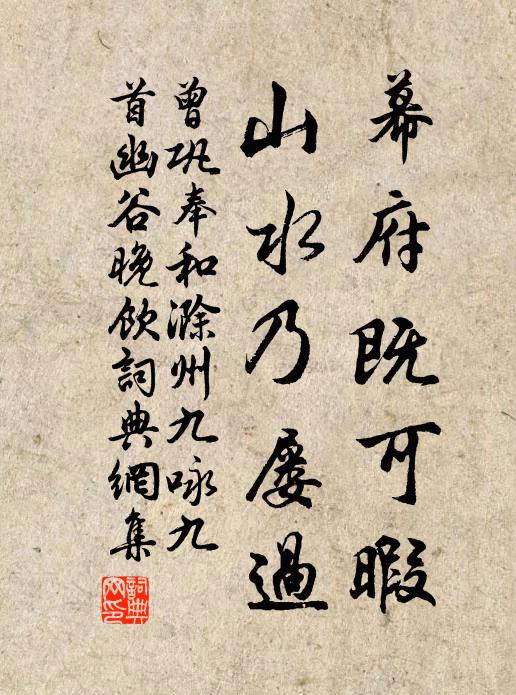 幕府既可暇
山水乃屡過
曾巩奉和滁州九咏九
首幽谷晚飲詞典網集
詞典
网印